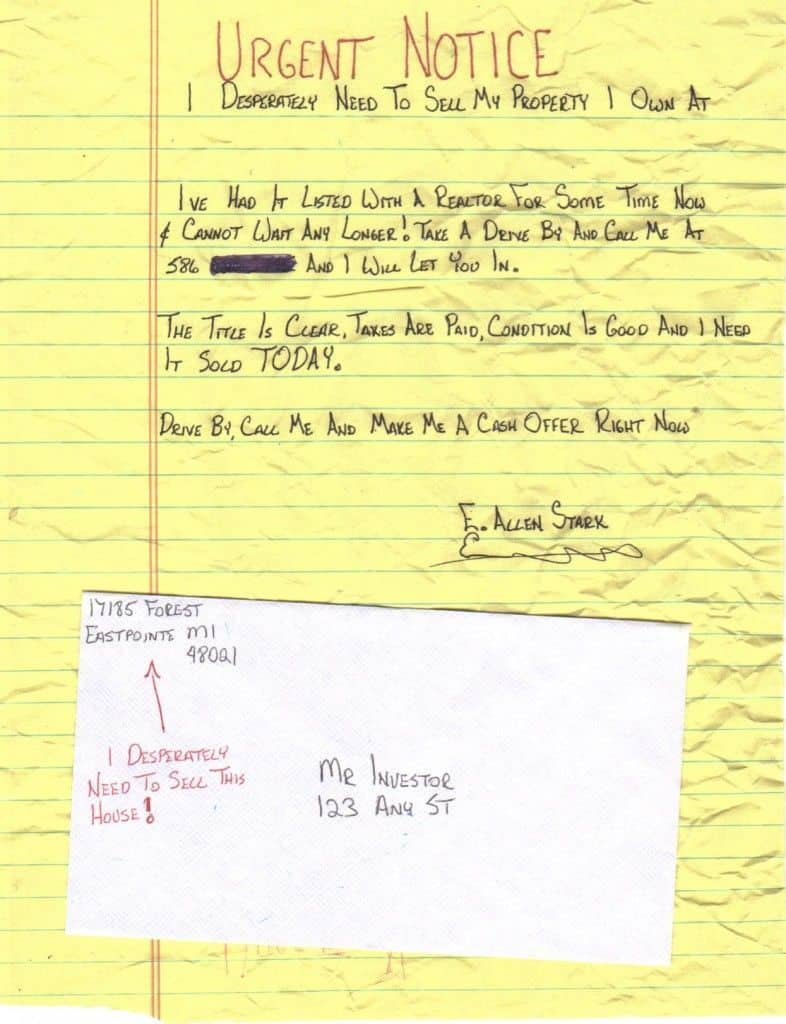 URGENT NOTICE
I DESPERATELY NEED TO SELL MY PROPERTY I OWN AT
IVE HAD IT LISTED WITH A REALTOR FOR SOME TIME NOW
& CANNOT WAIT ANY LONGER! TAKE A DRIVE BY AND CALL ME AT
586 AND I WILL LET YOU IN.
THE TITLE IS CLEAR, TAXES ARE PAID, CONDITION IS GOOD AND I NEED
IT SOLD TODAY.
DRIVE BY, CALL ME AND MAKE ME A CASH OFFER RIGHT NOW
E. ALLEN STARK
17185 FOREST
EASTPOINTE MI
48021
I DESPERATELY
NEED TO SELL THIS
HOUSE!
MR INVESTOR
123 ANY ST